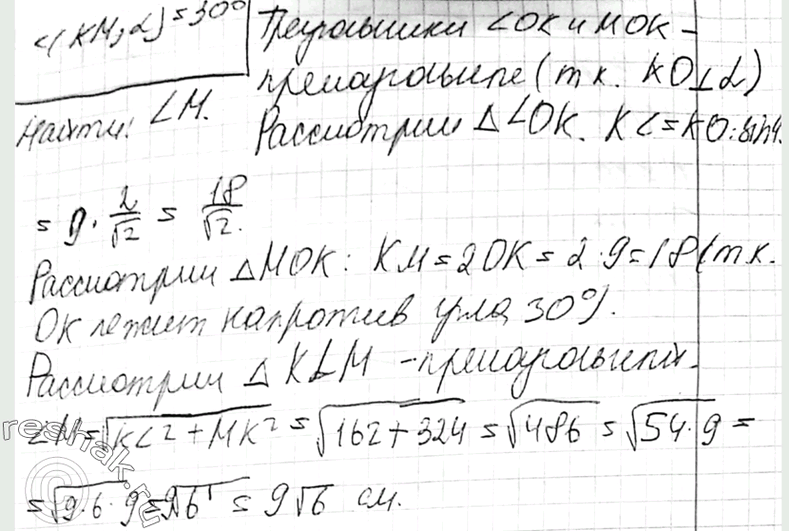 <(KM,α)=30°
Найти: LM.
Треугольники LOK и MOK –
прямоугольные (т.к. KO⊥α)
Рассмотрим △LOK. KL=KO:sin4
= 9·2/√2 = 18/√2.
Рассмотрим △MOK: KM=2OK=2·9=18(т.к.
OK лежит напротив угла 30°).
Рассмотрим △KLM – прямоугольный.
LM=√KL²+MK² = √162+324 = √486 = √54·9 =
=√9·6·9 = 9√6 = 9√6 см.
reshak.ru